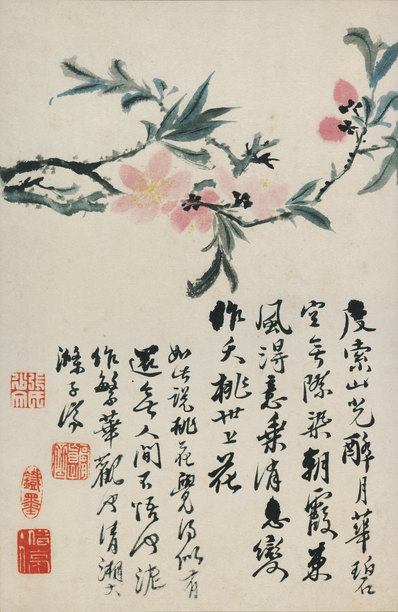 度索山光醉月華碧
空无際染朝霞東
風得意乘消息變
作夭桃世上花
如此說桃花覺得似有
還无人間不悟何泥
作繁華觀也清湘大
滌子